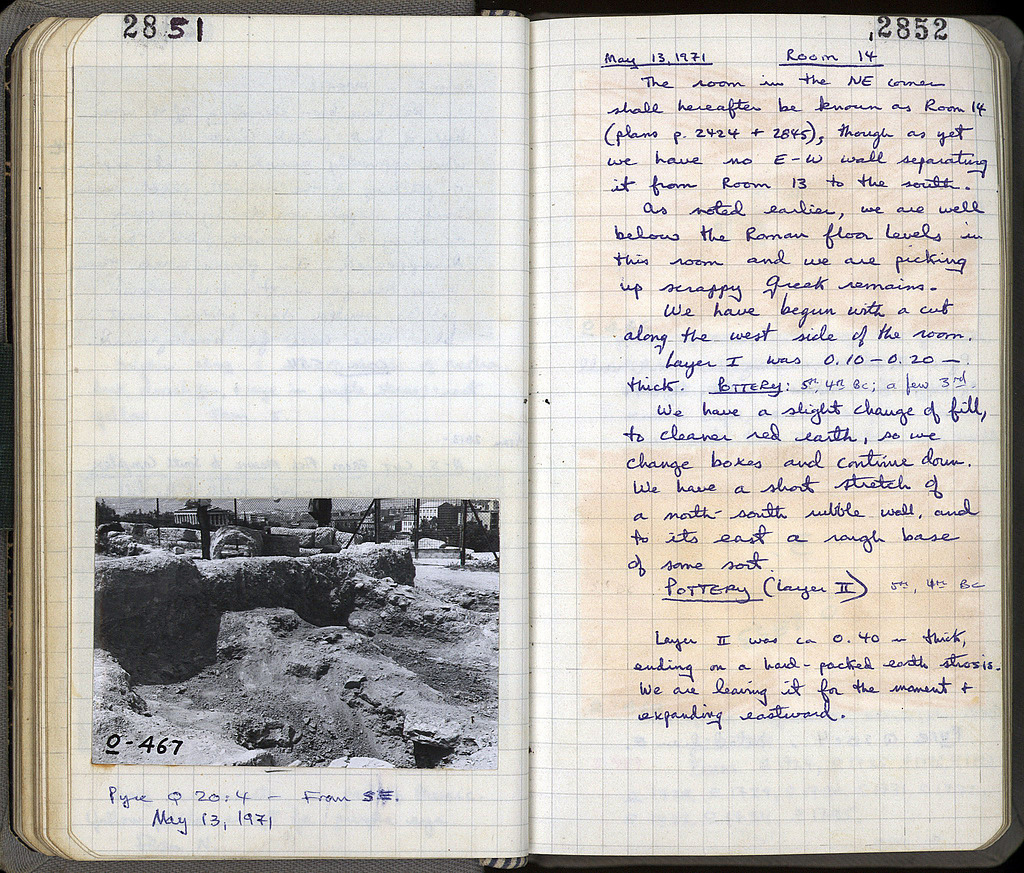 2851
O-467
Pyre Q 20:4 - From SE.
May 13, 1971
2852
May 13, 1971 Room 14
The room in the NE corner
shall hereafter be known as Room 14
(plans p. 2424 + 2845), though as yet
we have no E-W wall separating
it from Room 13 to the south.
As noted earlier, we are well
below the Roman floor levels in
this room and we are picking
up scrappy Greek remains.
We have begun with a cut
along the west side of the room.
Layer I was 0.10 - 0.20 -
thick. POTTERY: 5th, 4th BC; a few 3rd.
We have a slight change of fill,
to cleaner red earth, so we
change boxes and continue down.
We have a short stretch of
a north-south rubble wall, and
to its east a rough base
of some sort.
POTTERY (Layer II) 5th, 4th BC
Layer II was ca 0.40 m thick,
ending on a hard-packed earth strosis.
We are leaving it for the moment +
expanding eastward.